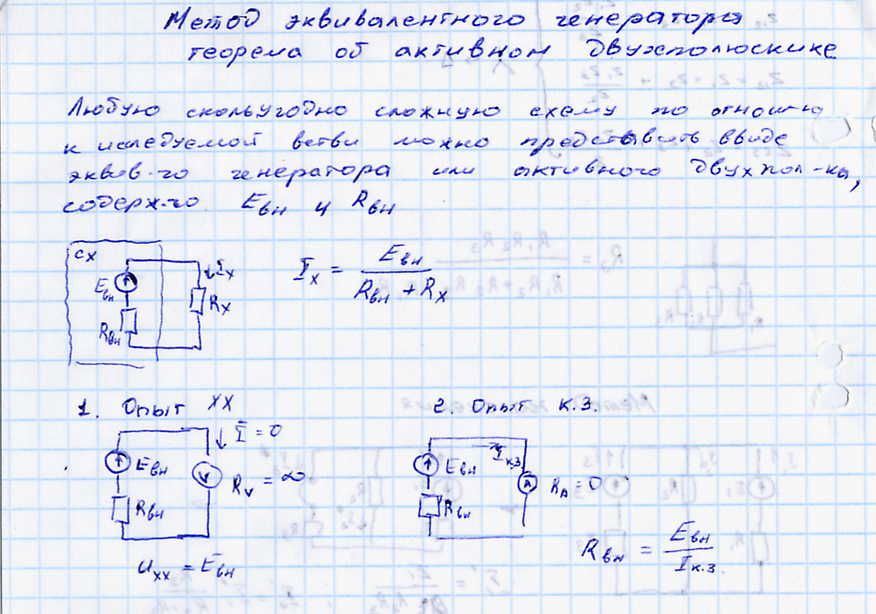 Метод эквивалентного генератора
теорема об активном двухполюснике
Любую скольугодно сложную схему по отнош-ю
к иследуемой ветви можно представить ввиде
эквив-го генератора или активного двухпол-ка,
содерж-го Eвн и Rвн
сх
Eвн
Rвн
Iх
Rх
Iх = Eвн / (Rвн + Rх)
1. Опыт ХХ
I = 0
Eвн
Rвн
Rv = ∞
Uхх = Eвн
2. Опыт К.З.
Iк.з
Eвн
Rвн
RА = 0
Rвн = Eвн / Iк.з.